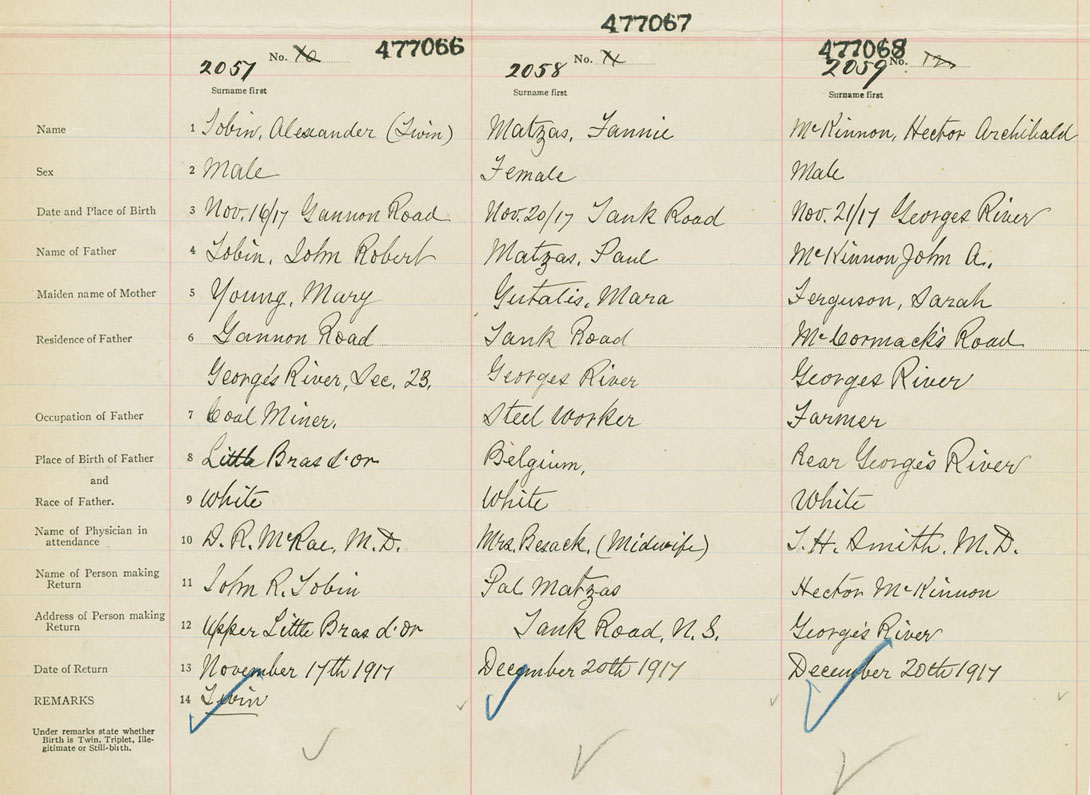 477066
477067
477068
No.
No.
No.
2057
2058
2059
Surname first
Surname first
Surname first
Name 1 Tobin, Alexander (Twin) Matzas, Fannie McKinnon, Hector Archibald
Sex 2 Male Female Male
Date and Place of Birth 3 Nov. 16/17 Gannon Road Nov. 20/17 Tank Road Nov. 21/17 Georges River
Name of Father 4 Tobin, John Robert Matzas, Paul McKinnon John A.
Maiden name of Mother 5 Young, Mary Gutatis, Mara Ferguson, Sarah
Residence of Father 6 Gannon Road Tank Road McCormack's Road
George's River, Sec. 23. Georges River Georges River
Occupation of Father 7 Coal Miner. Steel Worker Farmer
Place of Birth of Father 8 Little Bras d'or Belgium, Rear George's River
and
Race of Father. 9 White White White
Name of Physician in
attendance 10 D. R. McRae, M.D. Mrs. Besack, (Midwife) T. H. Smith, M.D.
Name of Person making
Return 11 John R. Tobin Pal Matzas Hector McKinnon
Address of Person making
Return 12 Upper Little Bras d'or Tank Road, N.S. George's River
Date of Return 13 November 17th 1917 December 20th 1917 December 20th 1917
REMARKS 14 Twin
Under remarks state whether
Birth is Twin, Triplet, Ille-
gitimate or Still-birth.